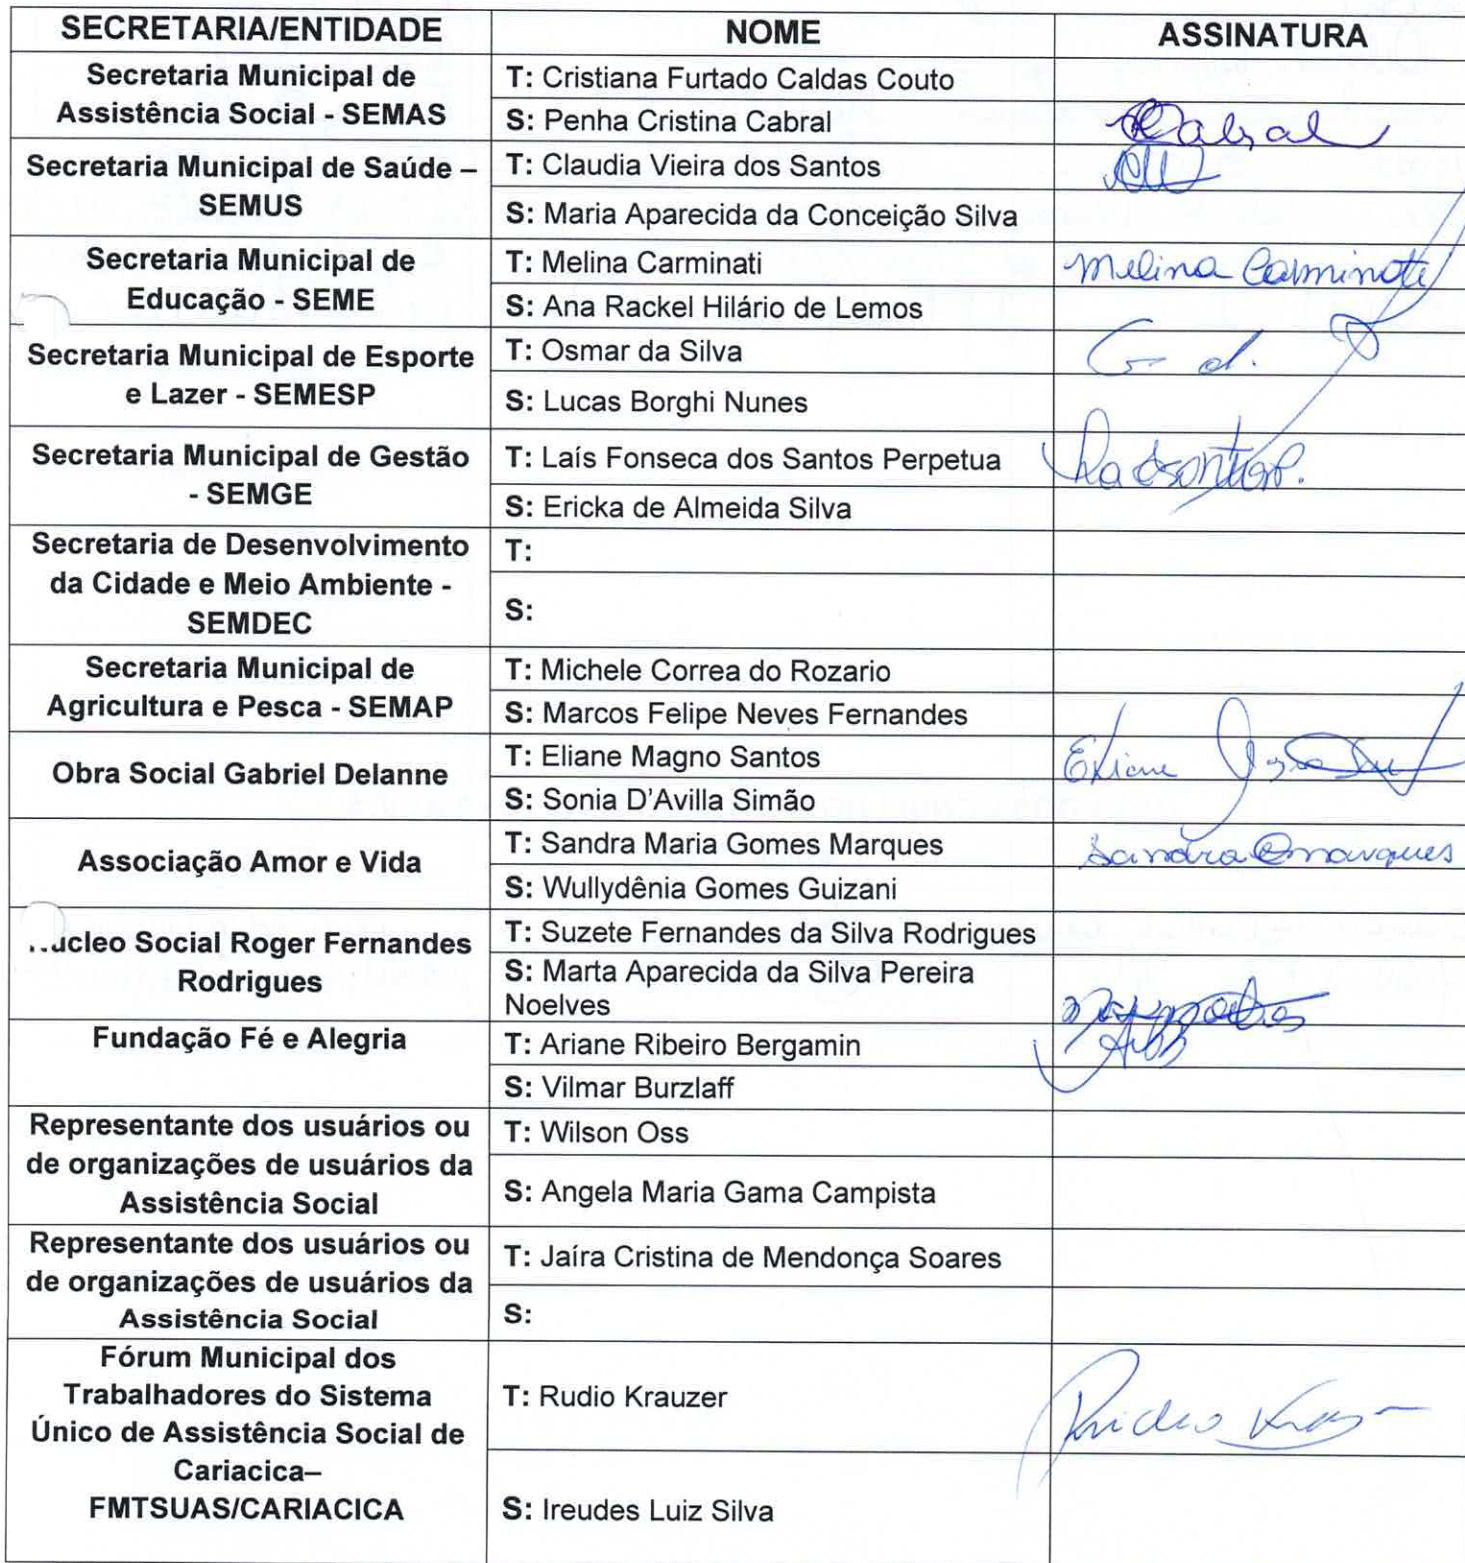 SECRETARIA/ENTIDADE NOME ASSINATURA
Secretaria Municipal de
Assistência Social - SEMAS
T: Cristiana Furtado Caldas Couto
S: Penha Cristina Cabral
Cabral
Secretaria Municipal de Saúde –
SEMUS
T: Claudia Vieira dos Santos
S: Maria Aparecida da Conceição Silva
Secretaria Municipal de
Educação - SEME
T: Melina Carminati
Melina Carminati
S: Ana Rackel Hilário de Lemos
Secretaria Municipal de Esporte
e Lazer - SEMESP
T: Osmar da Silva
S: Lucas Borghi Nunes
Secretaria Municipal de Gestão
- SEMGE
T: Laís Fonseca dos Santos Perpetua
S: Ericka de Almeida Silva
Secretaria de Desenvolvimento
da Cidade e Meio Ambiente -
SEMDEC
T:
S:
Secretaria Municipal de
Agricultura e Pesca - SEMAP
T: Michele Correa do Rozario
S: Marcos Felipe Neves Fernandes
Obra Social Gabriel Delanne
T: Eliane Magno Santos
Eliane
S: Sonia D'Avilla Simão
Associação Amor e Vida
T: Sandra Maria Gomes Marques
Sandra Gmarques
S: Wullydênia Gomes Guizani
Núcleo Social Roger Fernandes
Rodrigues
T: Suzete Fernandes da Silva Rodrigues
S: Marta Aparecida da Silva Pereira
Noelves
Fundação Fé e Alegria
T: Ariane Ribeiro Bergamin
S: Vilmar Burzlaff
Representante dos usuários ou
de organizações de usuários da
Assistência Social
T: Wilson Oss
S: Angela Maria Gama Campista
Representante dos usuários ou
de organizações de usuários da
Assistência Social
T: Jaíra Cristina de Mendonça Soares
S:
Fórum Municipal dos
Trabalhadores do Sistema
Único de Assistência Social de
Cariacica–
FMTSUAS/CARIACICA
T: Rudio Krauzer
Rudio
S: Ireudes Luiz Silva